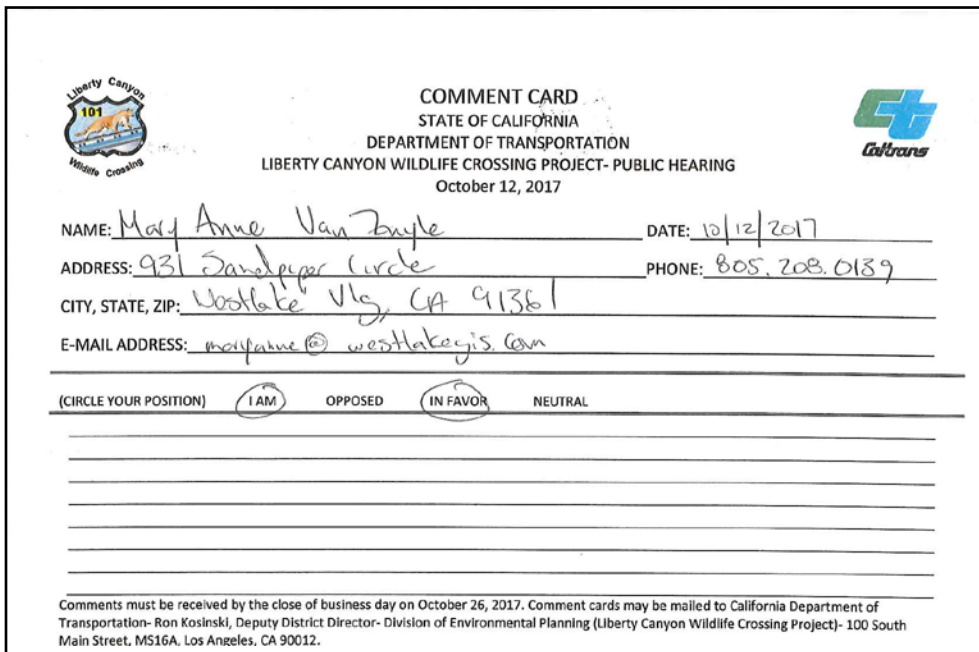 Liberty Canyon
101
Wildlife Crossing
COMMENT CARD
STATE OF CALIFORNIA
DEPARTMENT OF TRANSPORTATION
LIBERTY CANYON WILDLIFE CROSSING PROJECT- PUBLIC HEARING
October 12, 2017
Ct
Caltrans
NAME: Mary Anne Van DATE: 10/12/2017
ADDRESS: 931 Sandpiper Circle PHONE: 805.208.0139
CITY, STATE, ZIP: Westlake Vlg, CA 91361
E-MAIL ADDRESS: maryanne@westlakegis.com
(CIRCLE YOUR POSITION) I AM OPPOSED IN FAVOR NEUTRAL
Comments must be received by the close of business day on October 26, 2017. Comment cards may be mailed to California Department of
Transportation- Ron Kosinski, Deputy District Director- Division of Environmental Planning (Liberty Canyon Wildlife Crossing Project)- 100 South
Main Street, MS16A, Los Angeles, CA 90012.